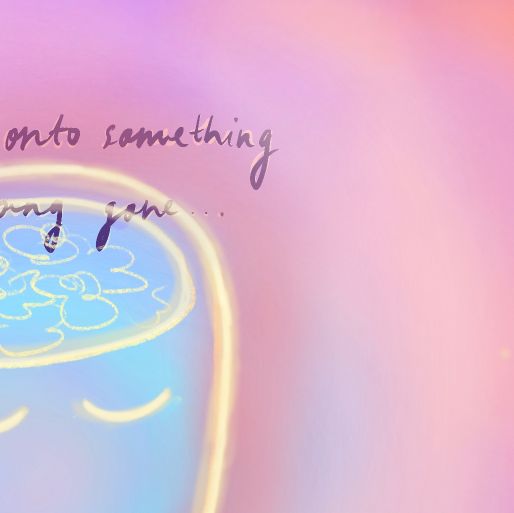 onto something
gone...